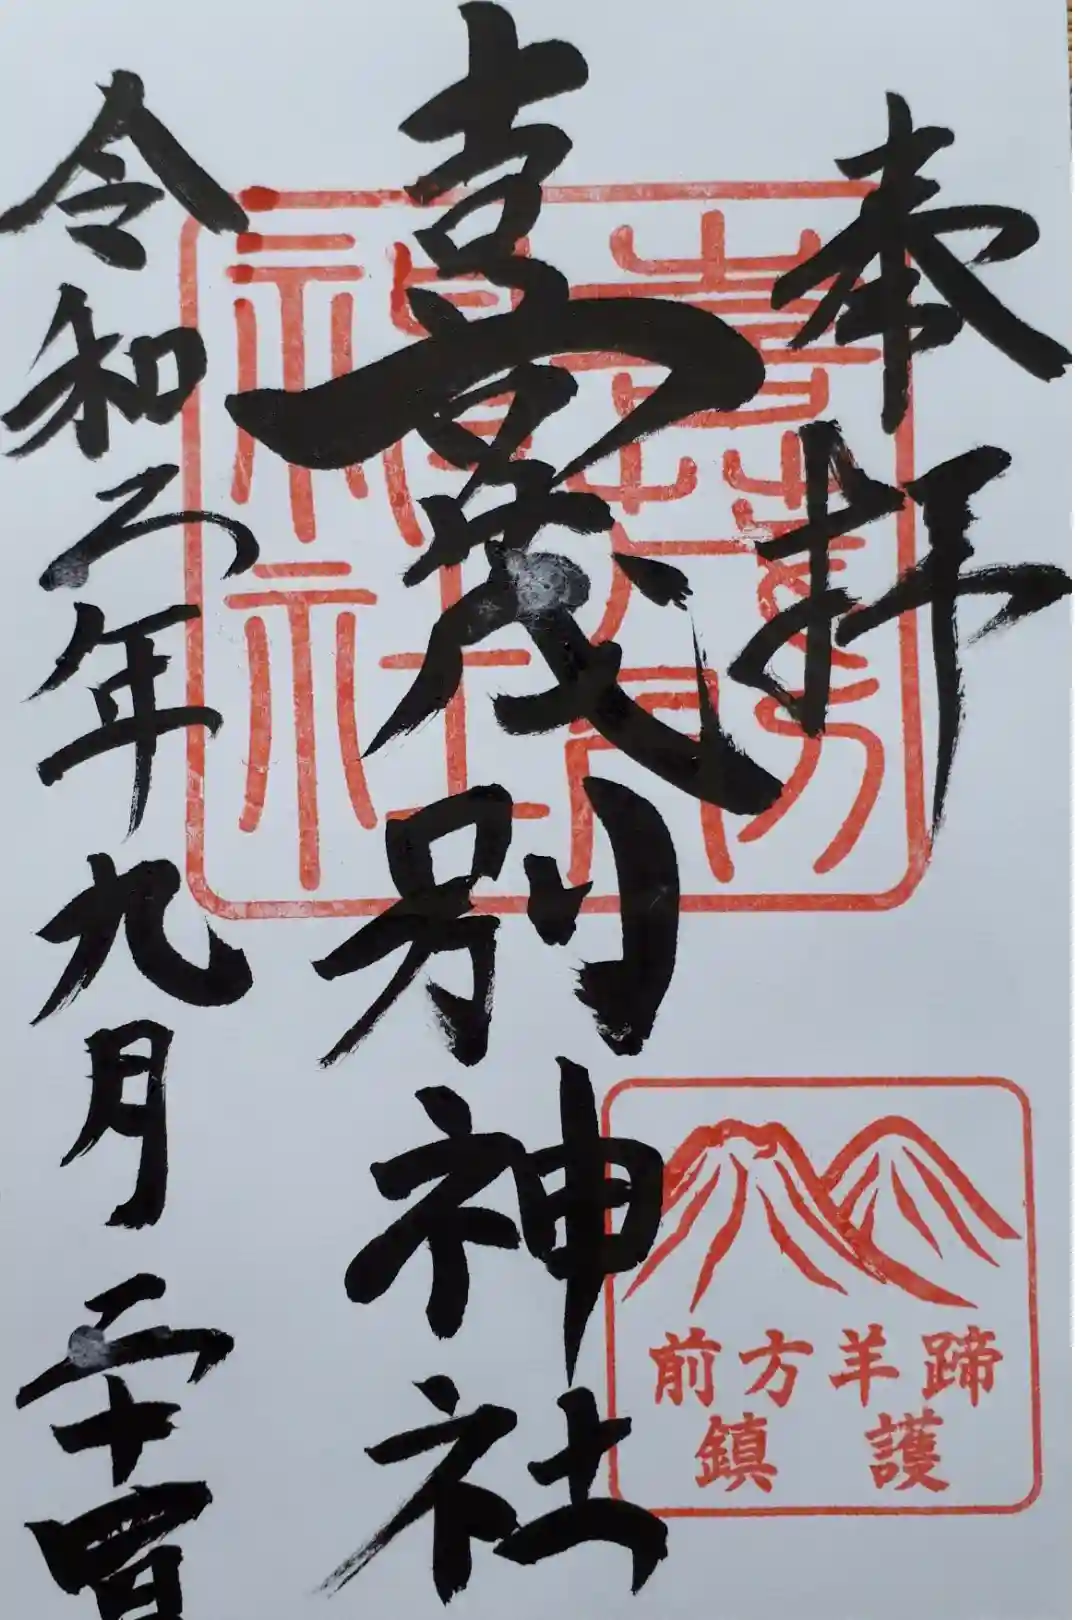 奉拝
喜茂別神社
令和二年九月二十四日
喜茂別
神社
前方羊蹄
鎮護